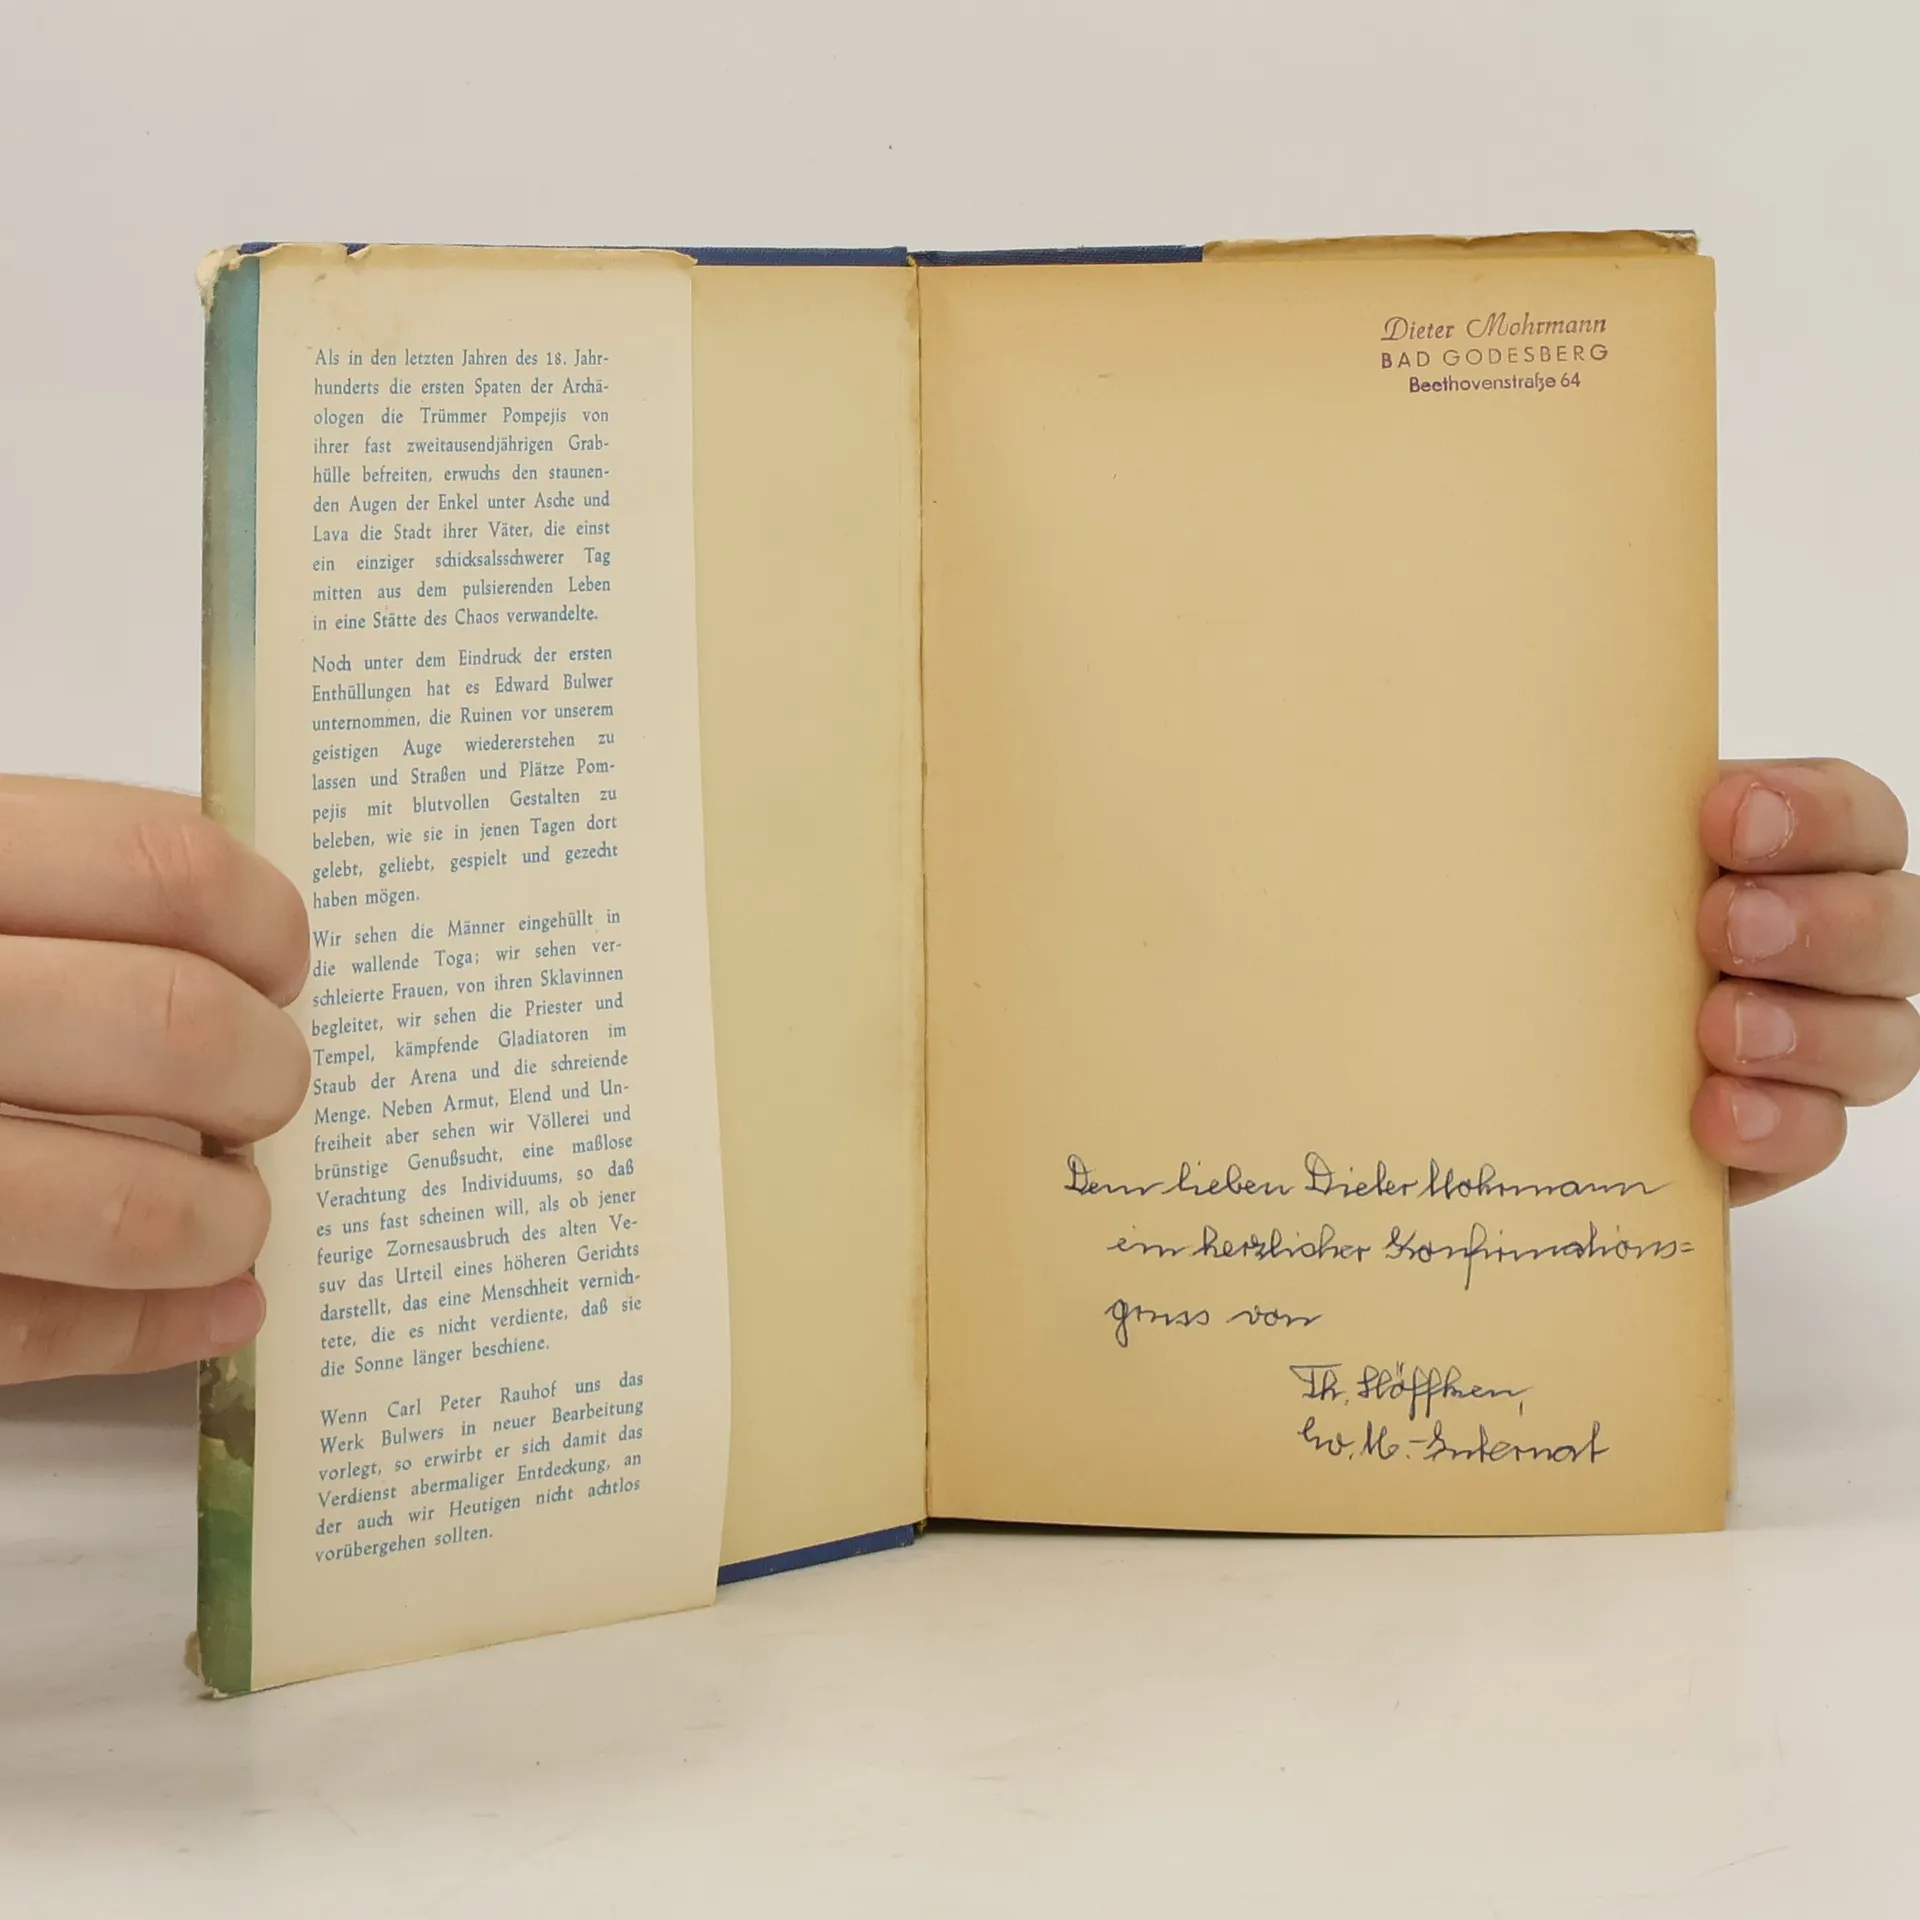 Als in den letzten Jahren des 18. Jahr-
hunderts die ersten Spaten der Archä-
ologen die Trümmer Pompejis von
ihrer fast zweitausendjährigen Grab-
hülle befreiten, erwuchs den staunen-
den Augen der Enkel unter Asche und
Lava die Stadt ihrer Väter, die einst
ein einziger schicksalsschwerer Tag
mitten aus dem pulsierenden Leben
in eine Stätte des Chaos verwandelte.
Noch unter dem Eindruck der ersten
Enthüllungen hat es Edward Bulwer
unternommen, die Ruinen vor unserem
geistigen Auge wiedererstehen zu
lassen und Straßen und Plätze Pom-
pejis mit blutvollen Gestalten zu
beleben, wie sie in jenen Tagen dort
gelebt, geliebt, gespielt und gezecht
haben mögen.
Wir sehen die Männer eingehüllt in
die wallende Toga; wir sehen ver-
schleierte Frauen, von ihren Sklavinnen
begleitet, wir sehen die Priester und
Tempel, kämpfende Gladiatoren im
Staub der Arena und die schreiende
Menge. Neben Armut, Elend und Un-
freiheit aber sehen wir Völlerei und
brünstige Genußsucht, eine maßlose
Verachtung des Individuums, so daß
es uns fast scheinen will, als ob jener
feurige Zornesausbruch des alten Ve-
suv das Urteil eines höheren Gerichts
darstellt, das eine Menschheit vernich-
tete, die es nicht verdiente, daß sie
die Sonne länger beschiene.
Wenn Carl Peter Rauhof uns das
Werk Bulwers in neuer Bearbeitung
vorlegt, so erwirbt er sich damit das
Verdienst abermaliger Entdeckung, an
der auch wir Heutigen nicht achtlos
vorübergehen sollten.
Dieter Mohrmann
BAD GODESBERG
Beethovenstraße 64
Dem lieben Dieter Mohrmann
ein herzlicher Konfirmations=
gruss von
Th. Höffken,
Internat